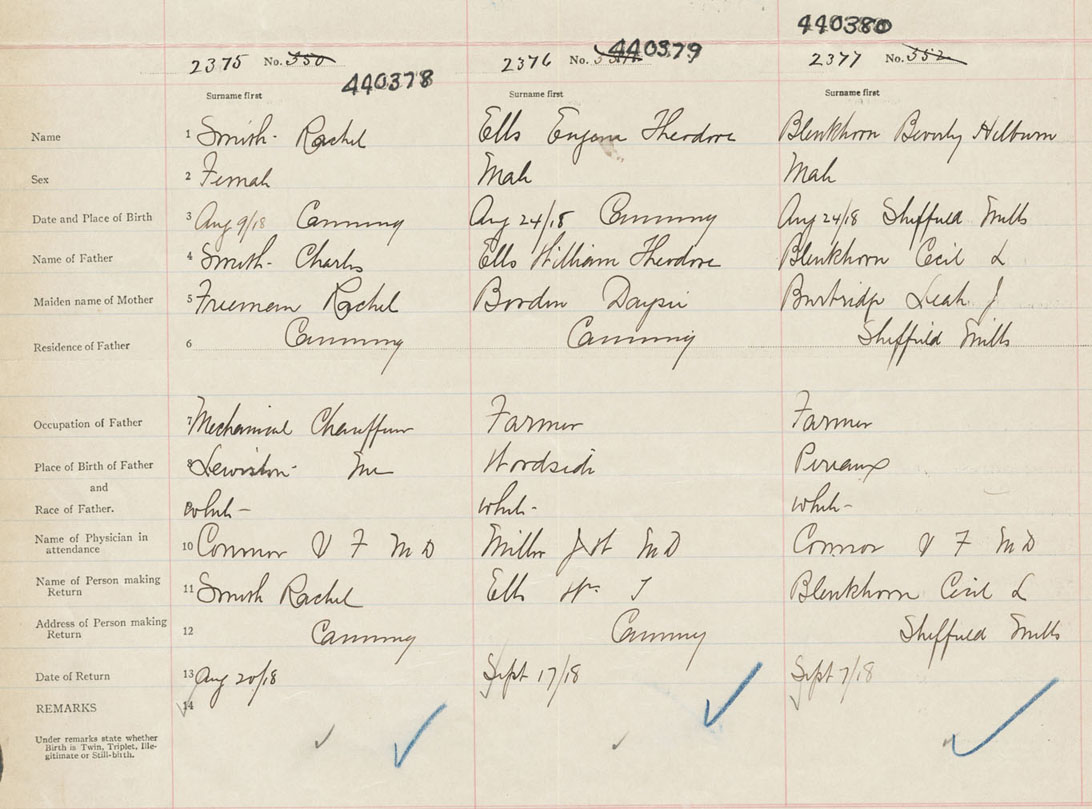 440380
2375 No. 350 2376 No. 2377 No. 352
440378 440379
Surname first Surname first Surname first
Name 1 Smith Rachel Ells Eugene Theodore Blenkhorn Beverly Hilburn
Sex 2 Female Male Male
Date and Place of Birth 3 Aug 9/18 Canning Aug 24/18 Canning Aug 24/18 Sheffield Mills
Name of Father 4 Smith Charles Ells William Theodore Blenkhorn Cecil L
Maiden name of Mother 5 Freeman Rachel Borden Daysie Burbridge Leah J
Residence of Father 6 Canning Canning Sheffield Mills
Occupation of Father 7 Mechanical Chauffeur Farmer Farmer
Place of Birth of Father 8 Lewiston Me Woodside Pereaux
and
Race of Father. 9 White White White
Name of Physician in
attendance 10 Connor V F M D Miller J W M D Connor V F M D
Name of Person making
Return 11 Smith Rachel Ells Wm T Blenkhorn Cecil L
Address of Person making
Return 12 Canning Canning Sheffield Mills
Date of Return 13 Aug 20/18 Sept 17/18 Sept 7/18
REMARKS 14
Under remarks state whether
Birth is Twin, Triplet, Ille-
gitimate or Still-birth.